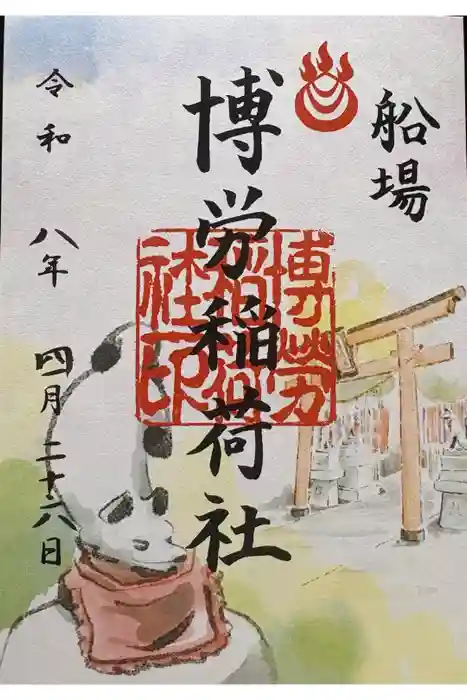 船場
博労稲荷社
博勞
稲荷
社印
令和八年四月二十八日